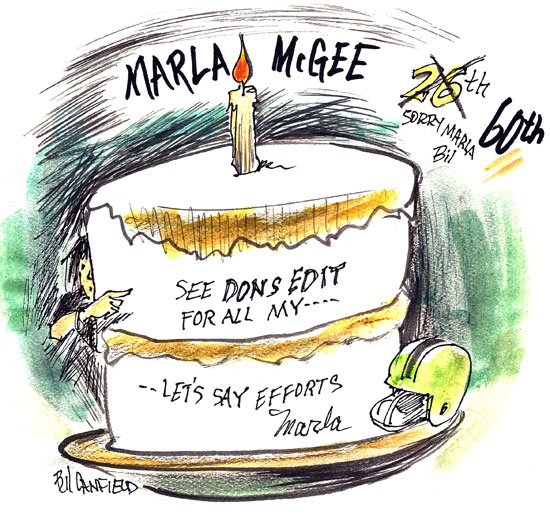 MARLA McGEE
26th
SORRY MARLA
Bil
60th
SEE DONS EDIT
FOR ALL MY----
--LET'S SAY EFFORTS
Marla
Bil CANFIELD